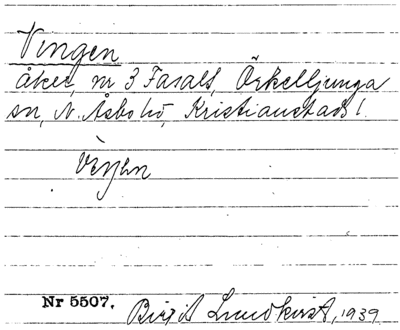 Vingen
åker, nr 3 Fasalt, Örkelljunga
sn, N. Åsbo hd, Kristianstads l.
Nr 5507. Birgit Lundkvist, 1939